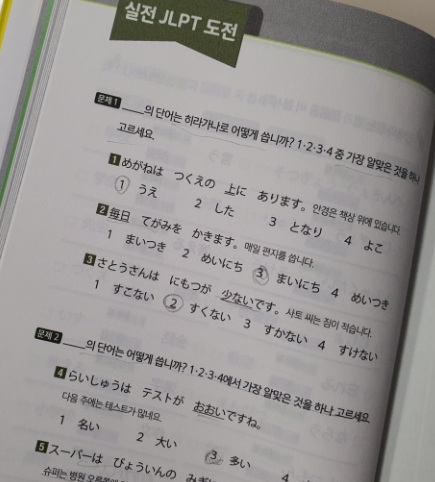 실전 JLPT 도전
문제 1 ____의 단어는 히라가나로 어떻게 씁니까? 1·2·3·4 중 가장 알맞은 것을 하나
고르세요.
1 めがねは つくえの 上に あります。 안경은 책상 위에 있습니다.
1 うえ 2 した 3 となり 4 よこ
2 毎日 てがみを かきます。 매일 편지를 씁니다.
1 まいつき 2 めいにち 3 まいにち 4 めいつき
3 さとうさんは にもつが 少ないです。 사토 씨는 짐이 적습니다.
1 すこない 2 すくない 3 すかない 4 すけない
문제 2 ____의 단어는 어떻게 씁니까? 1·2·3·4에서 가장 알맞은 것을 하나 고르세요.
4 らいしゅうは テストが おおいですね。
다음 주에는 테스트가 많네요.
1 名い 2 大い 3 多い 4
5 スーパーは びょういんの
슈퍼는 병원